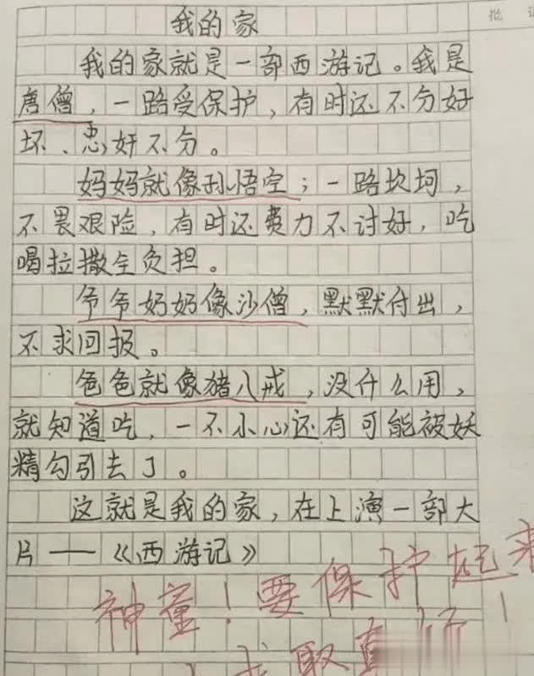 批
我的家
我的家就是一部西游记。我是
唐僧,一路受保护,有时还不分好
坏、忠奸不分。
妈妈就像孙悟空;一路坎坷,
不畏艰险,有时还费力不讨好,吃
喝拉撒全负担。
爷爷奶奶像沙僧,默默付出,
不求回报。
爸爸就像猪八戒,没什么用,
就知道吃,一不小心还有可能被妖
精勾引去了。
这就是我的家,在上演一部大
片——《西游记》
神童!要保护起来
取真经!